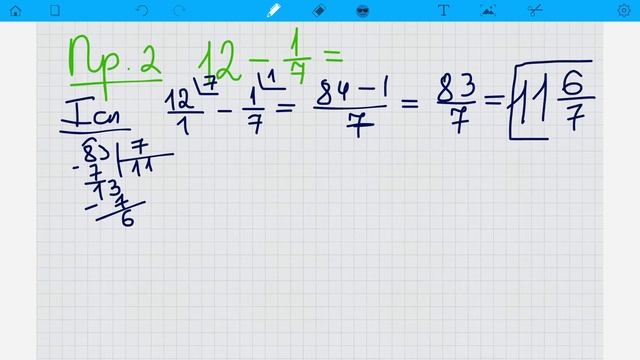 Пр. 2 12 - 1/7 =
I сп 12/1 ⌊7 - 1/7 ⌊1 = 84-1/7 = 83/7 = 11 6/7
83 | 7
- 7 | 11
13
- 7
6